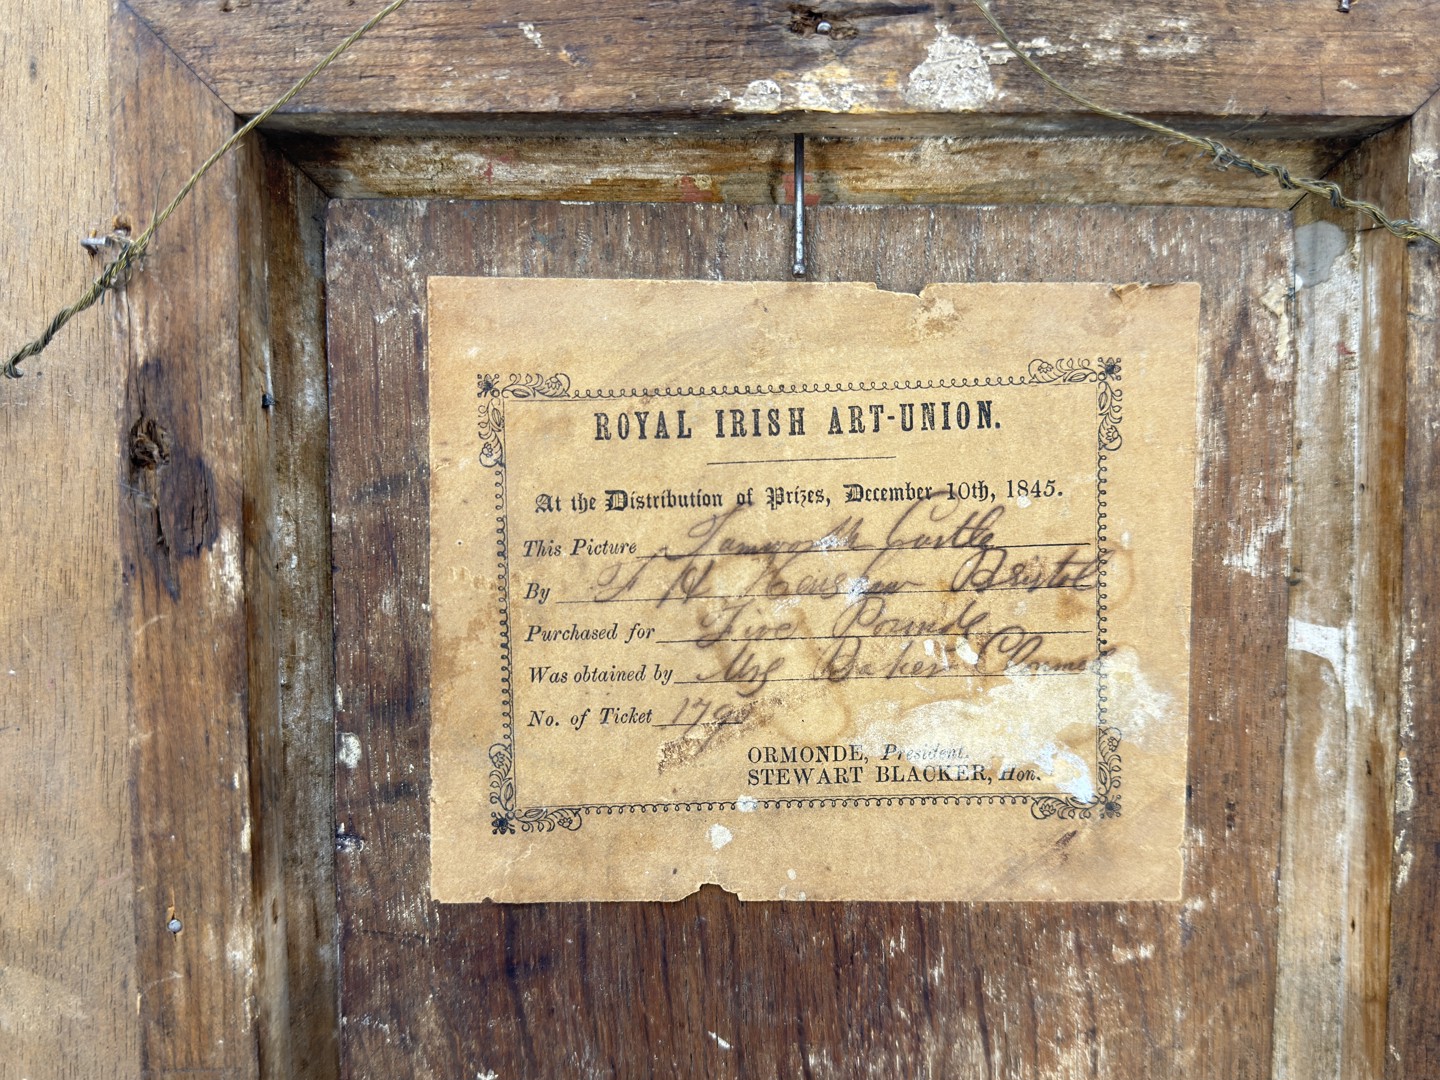 ROYAL IRISH ART-UNION.
At the Distribution of Prizes, December 10th, 1845.
This Picture Tamworth Castle
By F H Henshaw Bristol
Purchased for Five Pounds
Was obtained by Mrs Baker Clonmel
No. of Ticket
ORMONDE, President.
STEWART BLACKER, Hon.